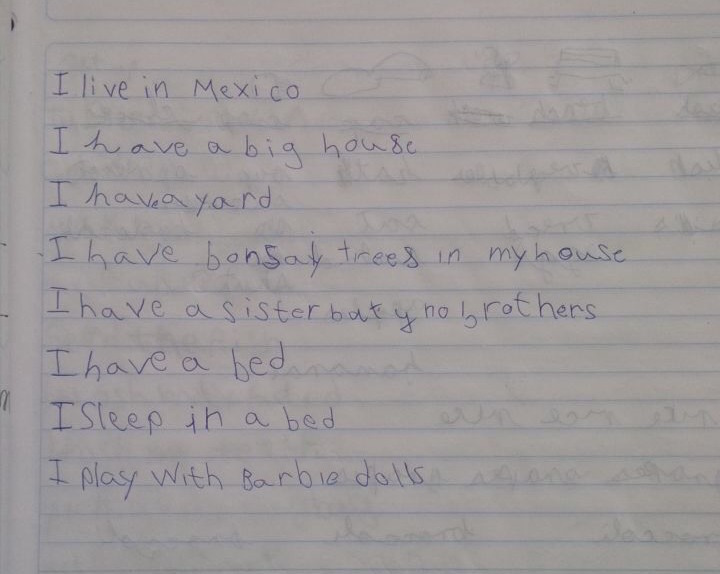 I live in Mexico
I have a big house
I have a yard
I have bonsay trees in my house
I have a sister but y no brothers
I have a bed
I Sleep in a bed
I play with Barbie dolls